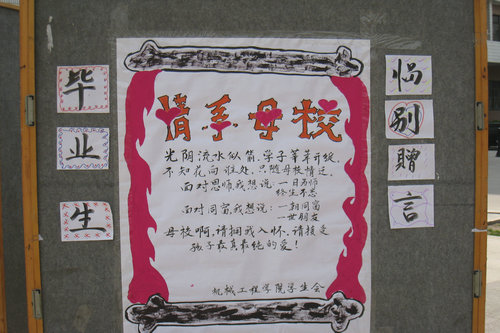 毕业生
临别贈言
情系母校
光阴流水似箭,学子
不知花向谁处,只随母校情
面对恩师我想说:一日为师
终生不忘
面对同窗,我想说:一朝同窗
一世朋友
母校啊,请拥我入怀,请接受
孩子最真最纯的爱!
机械工程学院学生会